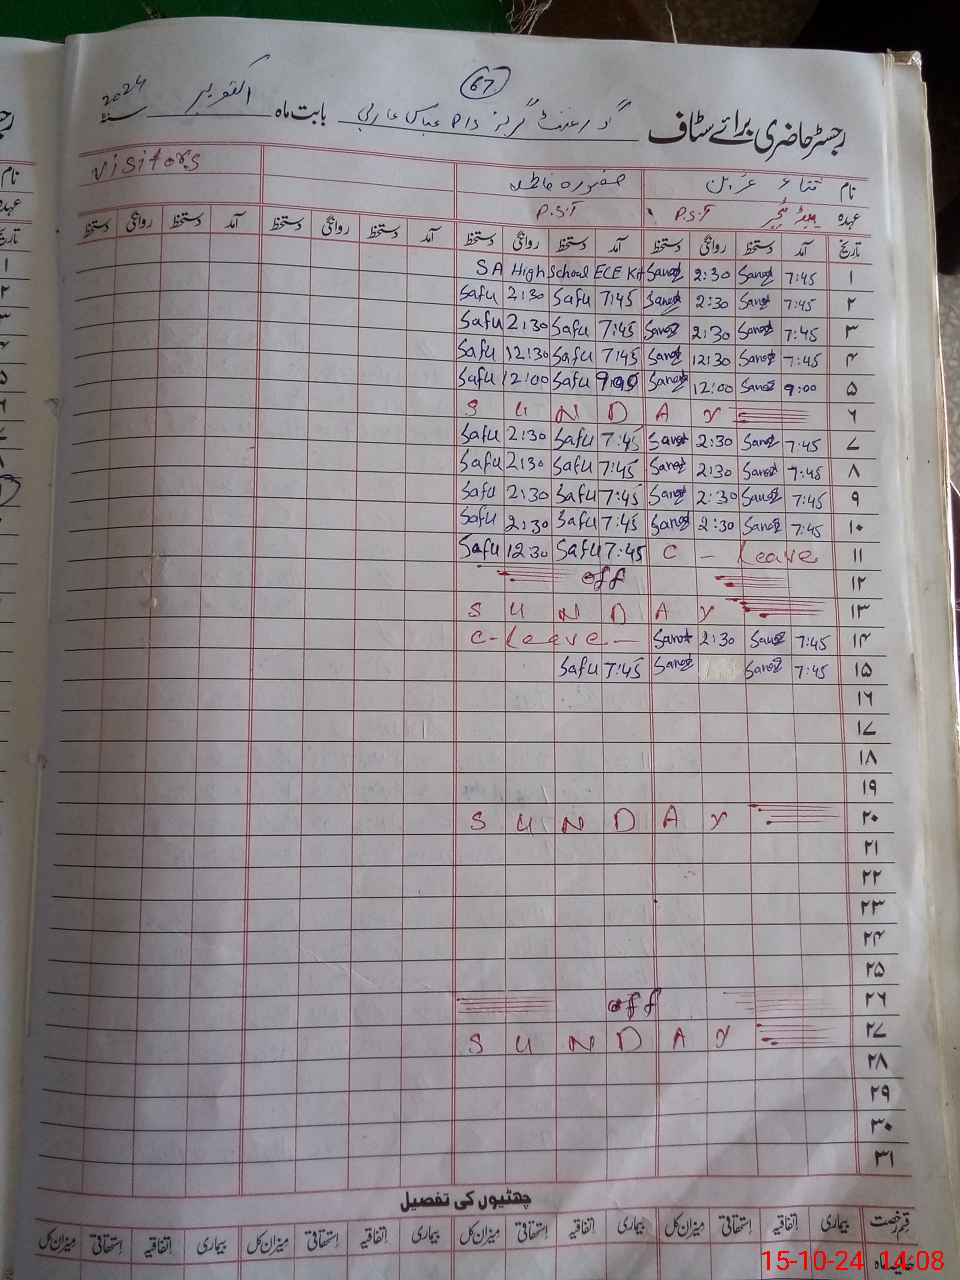 67
رجسٹر حاضری برائے سٹاف گورنمنٹ گرلز بابت ماہ اکتوبر سنہ 2024
نام ثناء صفورہ فاطمہ Visitors
عہدہ ہیڈ ٹیچر P.S.T P.S.T
تاریخ آمد دستخط روانگی دستخط آمد دستخط روانگی دستخط آمد دستخط روانگی دستخط آمد دستخط روانگی دستخط
۱ 7:45 Sanaz 2:30 Sanaz SA High School ECE
۲ 7:45 Sanaz 2:30 Sanaz 7:45 Safu 2:30 Safu
۳ 7:45 Sanaz 2:30 Sanaz 7:45 Safu 2:30 Safu
۴ 7:45 Sanaz 12:30 Sanaz 7:45 Safu 12:30 Safu
۵ 9:00 Sanaz 12:00 Sanaz Safu 12:00 Safu
۶ SUNDAY
۷ 7:45 Sanaz 2:30 Sanaz 7:45 Safu 2:30 Safu
۸ 7:45 Sanaz 2:30 Sanaz 7:45 Safu 2:30 Safu
۹ 7:45 Sanaz 2:30 Sanaz 7:45 Safu 2:30 Safu
۱۰ 7:45 Sanaz 2:30 Sanaz 7:45 Safu 2:30 Safu
۱۱ C - Leave 7:45 Safu 12:30 Safu
۱۲ off
۱۳ SUNDAY
۱۴ 7:45 Sanaz 2:30 Sanaz C-Leave-
۱۵ 7:45 Sanaz Sanaz 7:45 Safu
۱۶
۱۷
۱۸
۱۹
۲۰ SUNDAY
۲۱
۲۲
۲۳
۲۴
۲۵
۲۶ off
۲۷ SUNDAY
۲۸
۲۹
۳۰
۳۱
چھٹیوں کی تفصیل
قسم رخصت بیماری اتفاقیہ استحقاقی میزان کل بیماری اتفاقیہ استحقاقی میزان کل بیماری اتفاقیہ استحقاقی میزان کل بیماری اتفاقیہ استحقاقی میزان کل
15-10-24 14:08